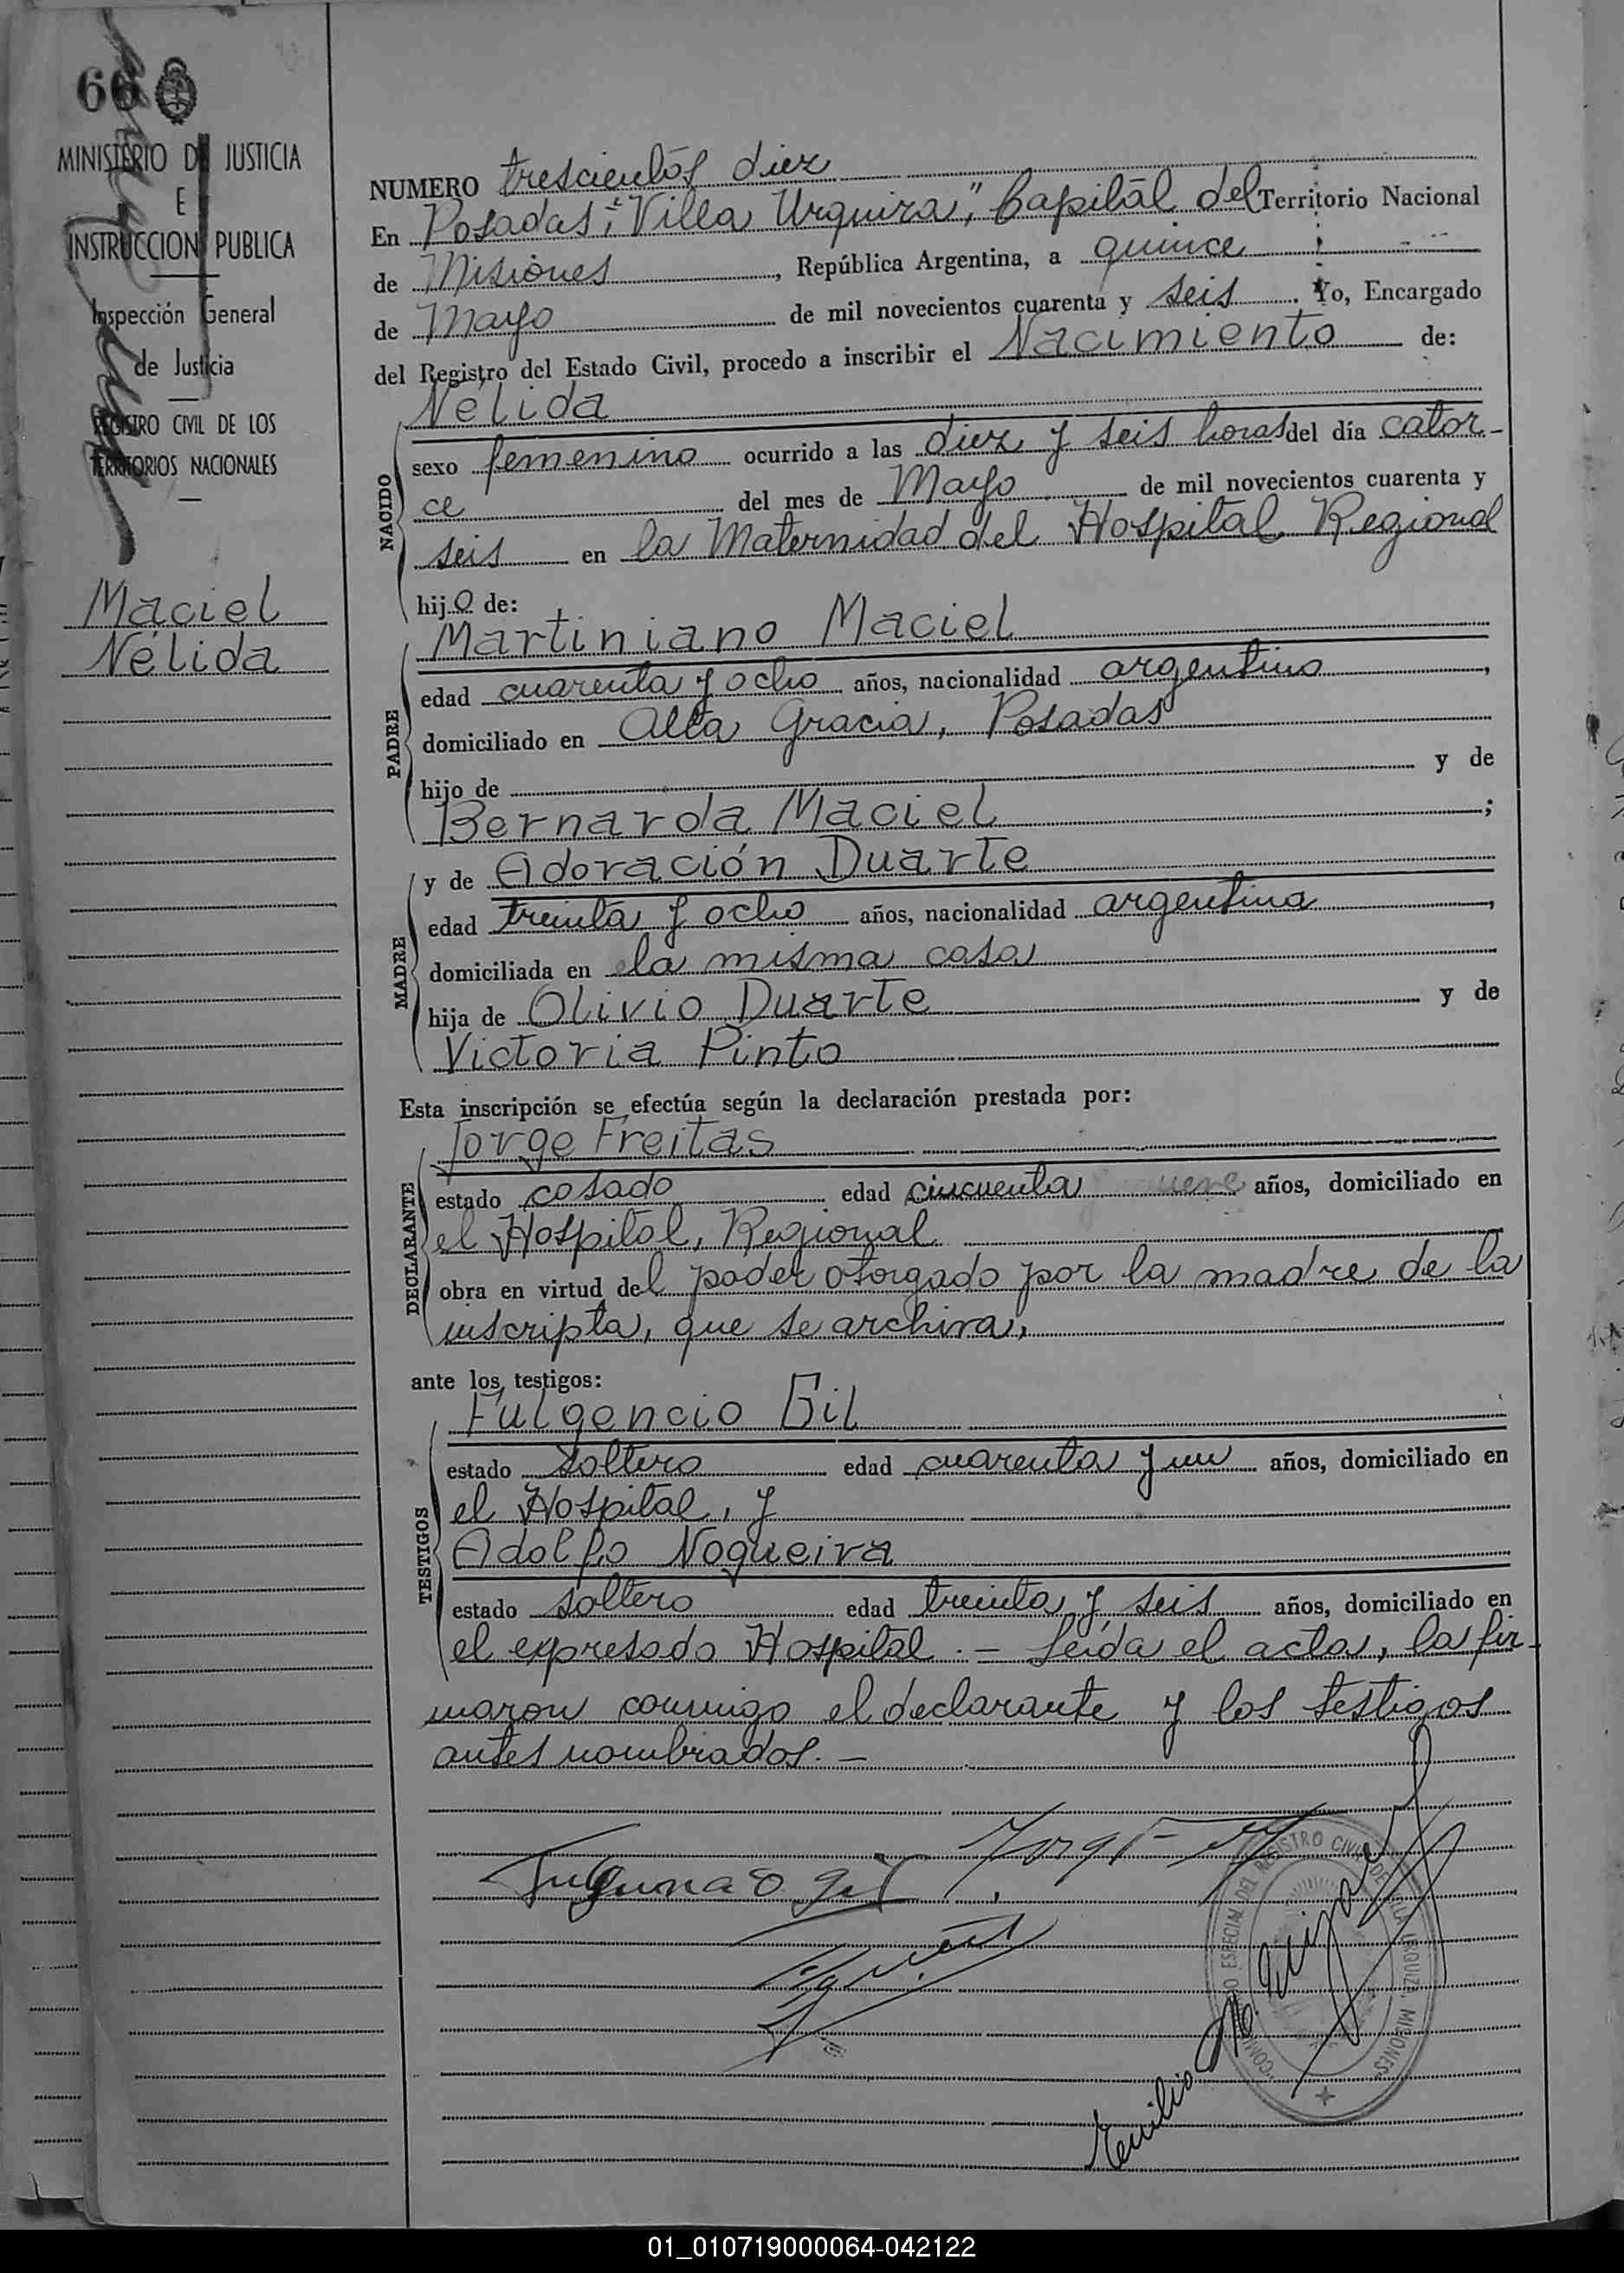 66
MINISTERIO DE JUSTICIA
E
INSTRUCCION PUBLICA
Inspección General
de Justicia
REGISTRO CIVIL DE LOS
TERRITORIOS NACIONALES
Maciel
Nélida
NUMERO trescientos diez
En Posadas, "Villa Urquiza," Capital del Territorio Nacional
de Misiones, República Argentina, a quince
de Mayo de mil novecientos cuarenta y seis. Yo, Encargado
del Registro del Estado Civil, procedo a inscribir el Nacimiento de:
Nélida
NACIDO
sexo femenino ocurrido a las diez y seis horas del día cator-
ce del mes de Mayo de mil novecientos cuarenta y
seis en la Maternidad del Hospital Regional
hijo de:
Martiniano Maciel
PADRE
edad cuarenta y ocho años, nacionalidad argentino,
domiciliado en Alta Gracia, Posadas
hijo de y de
Bernarda Maciel;
y de Adoración Duarte
MADRE
edad treinta y ocho años, nacionalidad argentina,
domiciliada en la misma casa
hija de Olivio Duarte y de
Victoria Pinto
Esta inscripción se efectúa según la declaración prestada por:
Jorge Freitas
DECLARANTE
estado casado edad cincuenta años, domiciliado en
el Hospital, Regional
obra en virtud del poder otorgado por la madre de la
inscripta, que se archiva,
ante los testigos:
Fulgencio Gil
TESTIGOS
estado soltero edad cuarenta y un años, domiciliado en
el Hospital, y
Adolfo Nogueira
estado soltero edad treinta y seis años, domiciliado en
el expresado Hospital.- Leída el acta, la fir-
maron conmigo el declarante y los testigos
antes nombrados.-
REGISTRO CIVIL DE VILLA URQUIZA, MISIONES
01_010719000064-042122